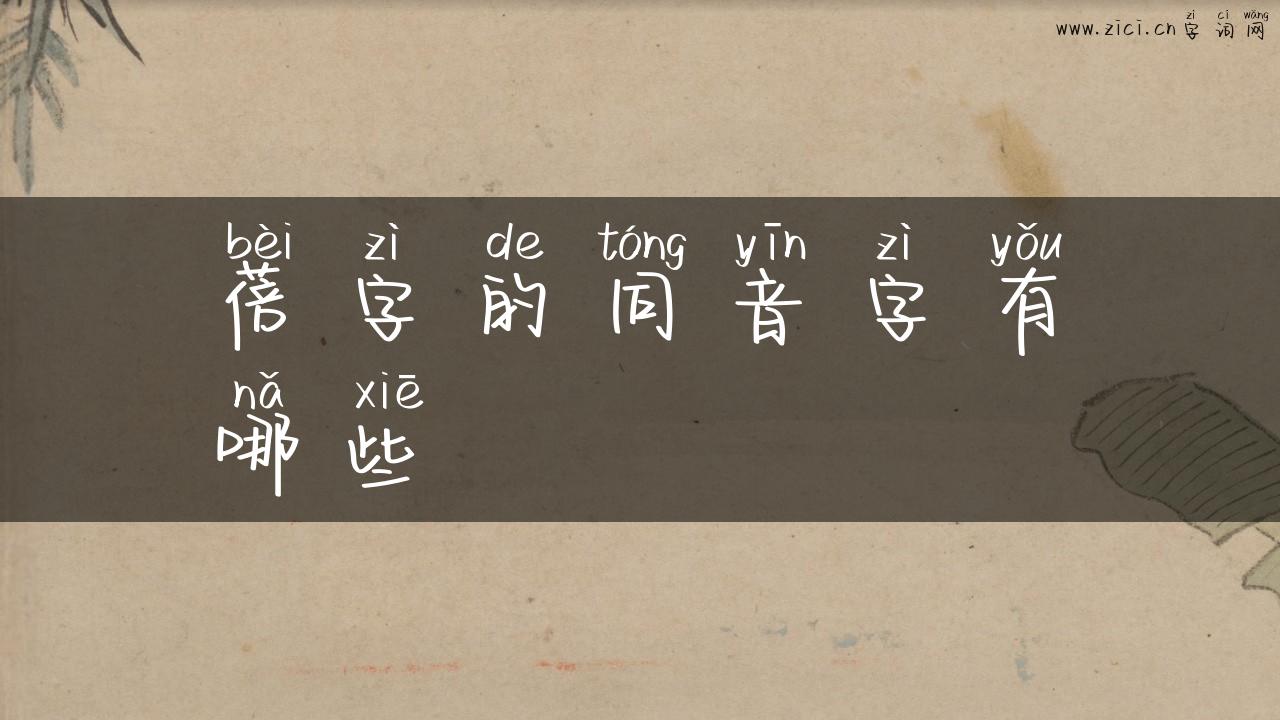 zì cí wǎng
www.zici.cn 字词网
bèi zì de tóng yīn zì yǒu
蓓字的同音字有
nǎ xiē
哪些